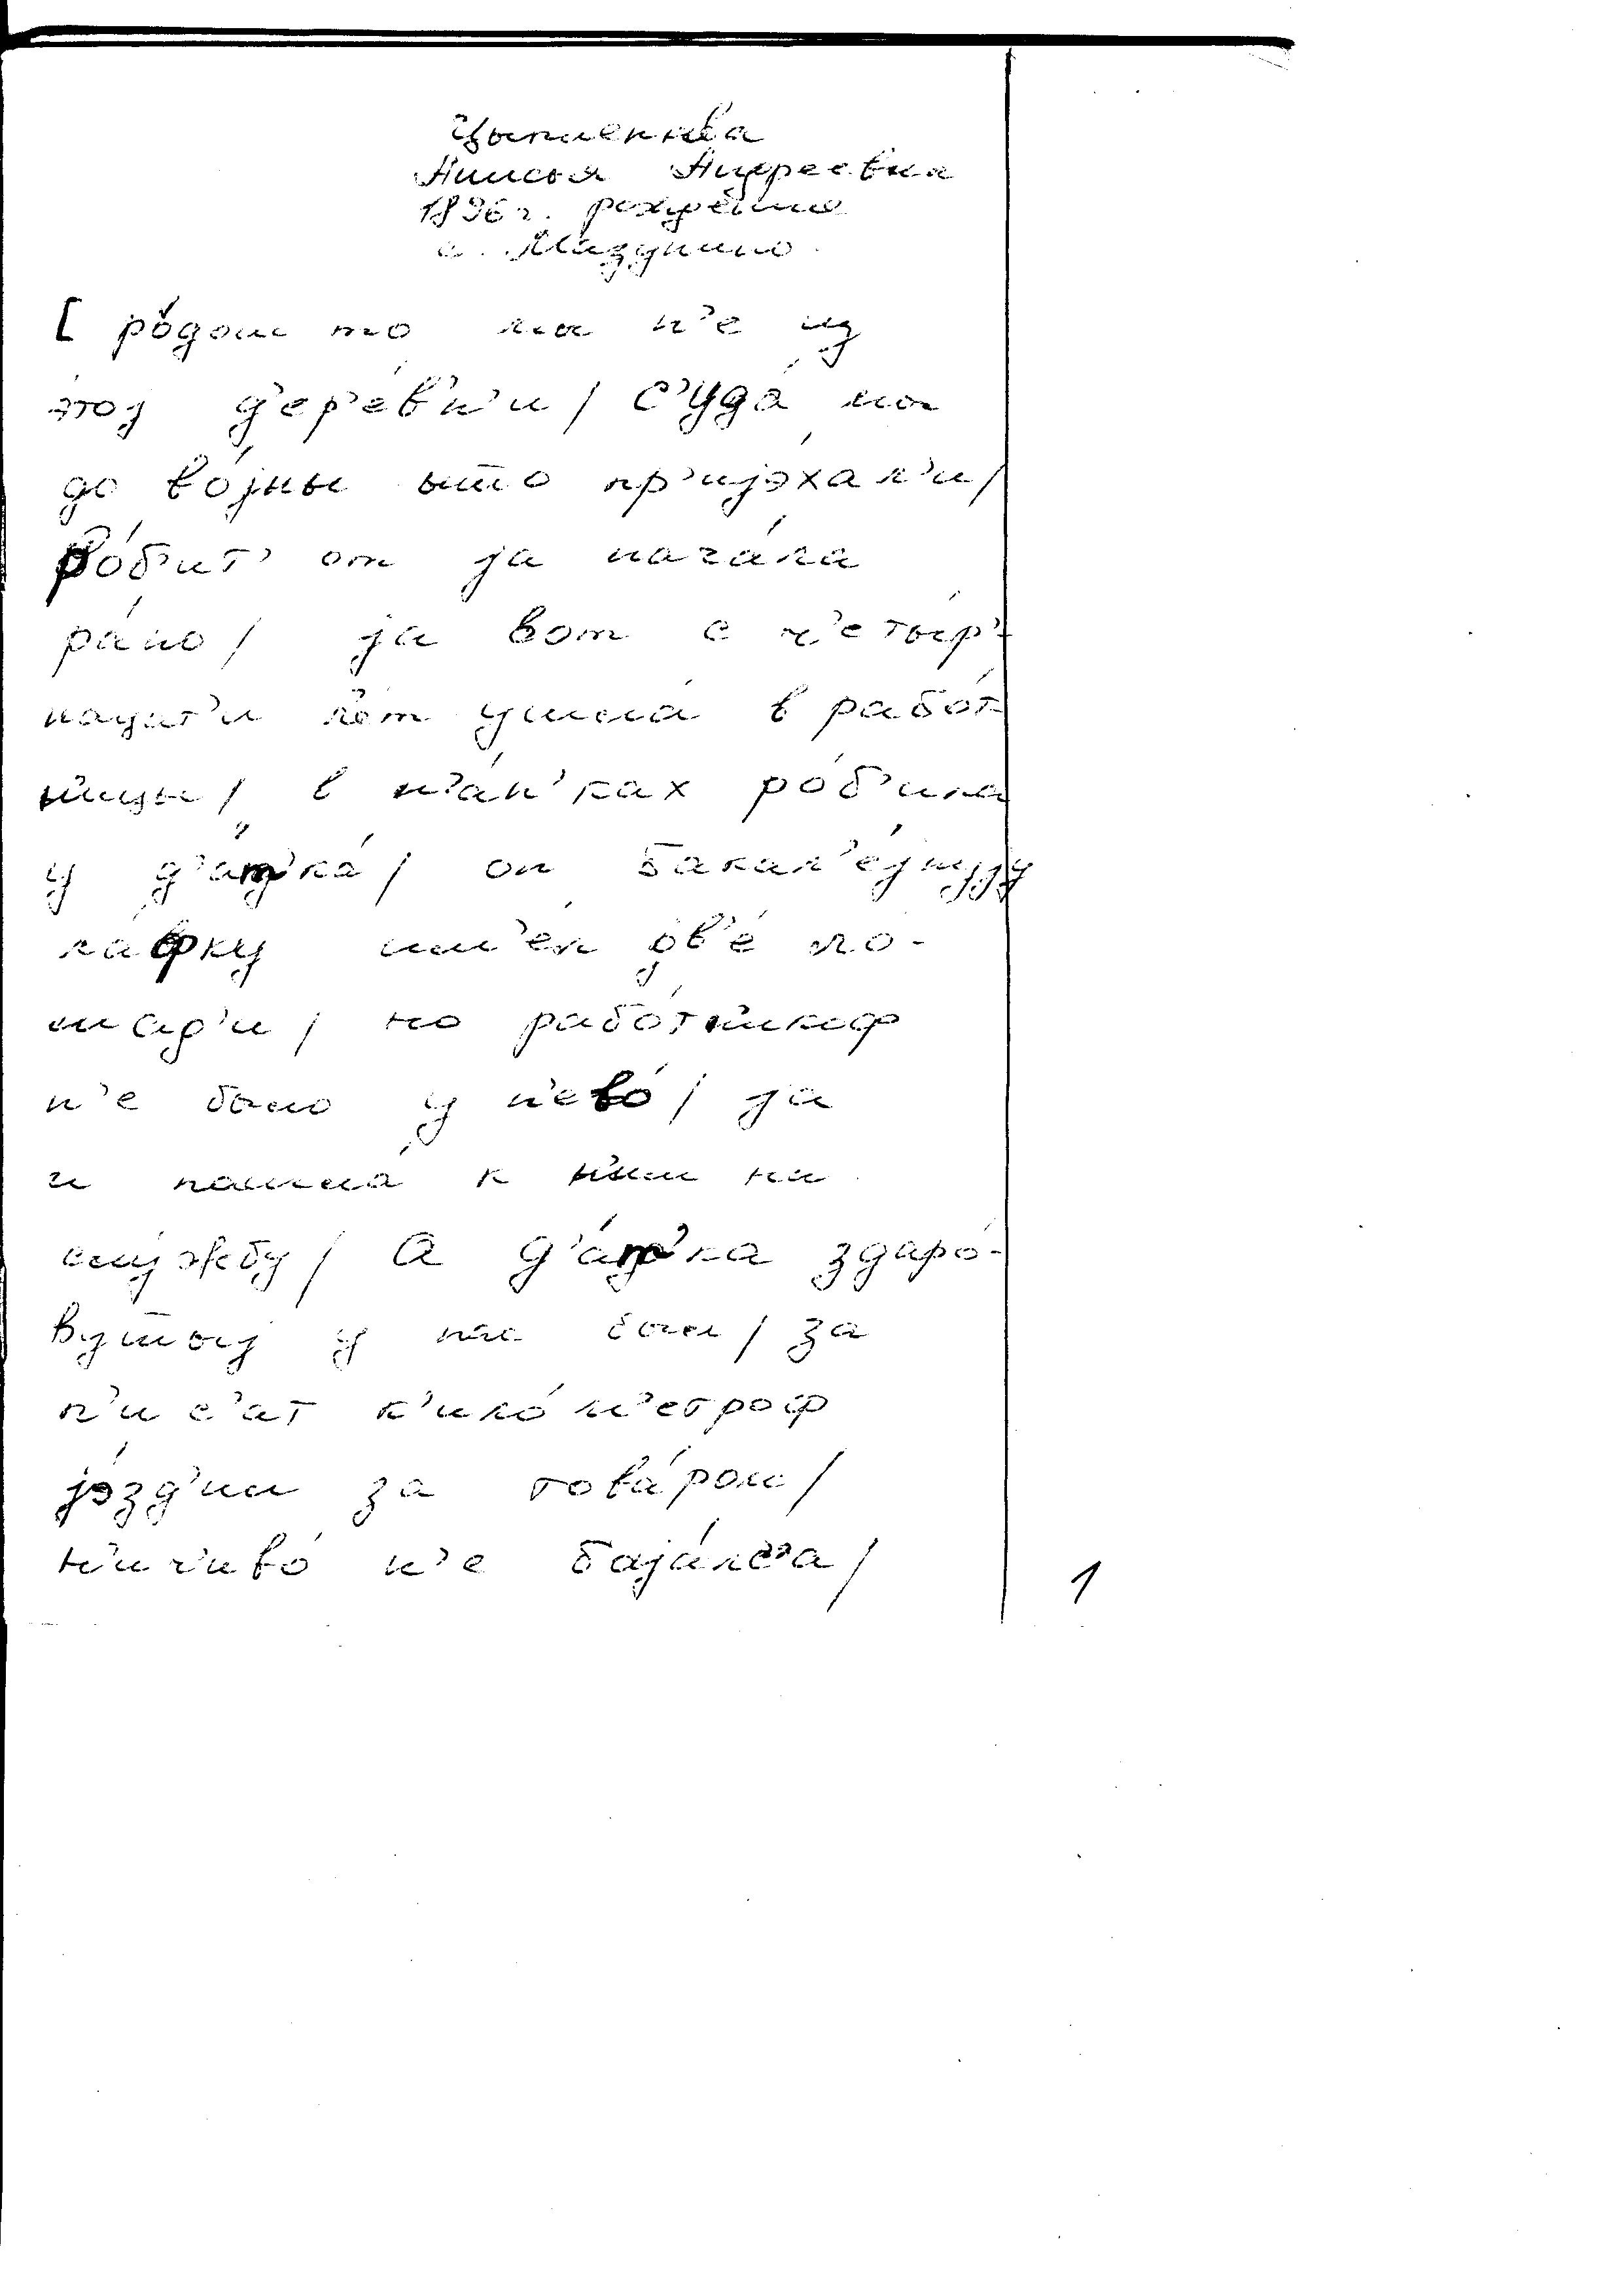 Анисья Андреевна
1896 г. рождения
с. Мазунино
[ ро́дом то мы н'е из
этој д'ер'е́в'н'и / с'уда́ мы
до во́јны ышшо пр'ијэ́хал'и /
Ро́б'ит' от ја начала́
ра́но / ја вот с ч'еты́р'-
нацат'и л'ет ушла́ в рабо́т-
н'ицы / в н'а́н'ках ро́б'ила
у д'а́т'ка / он бакал'е́јнују
лафку им'ел д'в'е́ ло-
шад'и / но рабо́тн'икоф
н'е было у н'ево́ / ја
и пашла́ к н'им на
слу́жбу / а д'а́т'ка здаро́-
вушшыј у нас был / за
п'ис'ат к'ило́м'етроф
јэ́зд'ил за това́ром /
н'ич'иво́ н'е баја́лс'а /
1